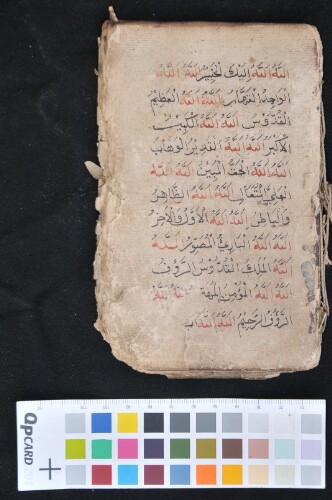 الله الله إليك الخبير الله الله
الواحد القهار الله الله العظيم
القدوس الله الله الكبير
الأكبر الله الله القدير الوهاب
الله الله الحق المبين الله الله
المتعال الله الله الظاهر
والباطن الله الله الأول والآخر
الله الله البارئ المصور الله
الله الملك القدوس الرؤوف
الله الله المؤمن الله
الرؤوف الرحيم الله الله
QP CARD